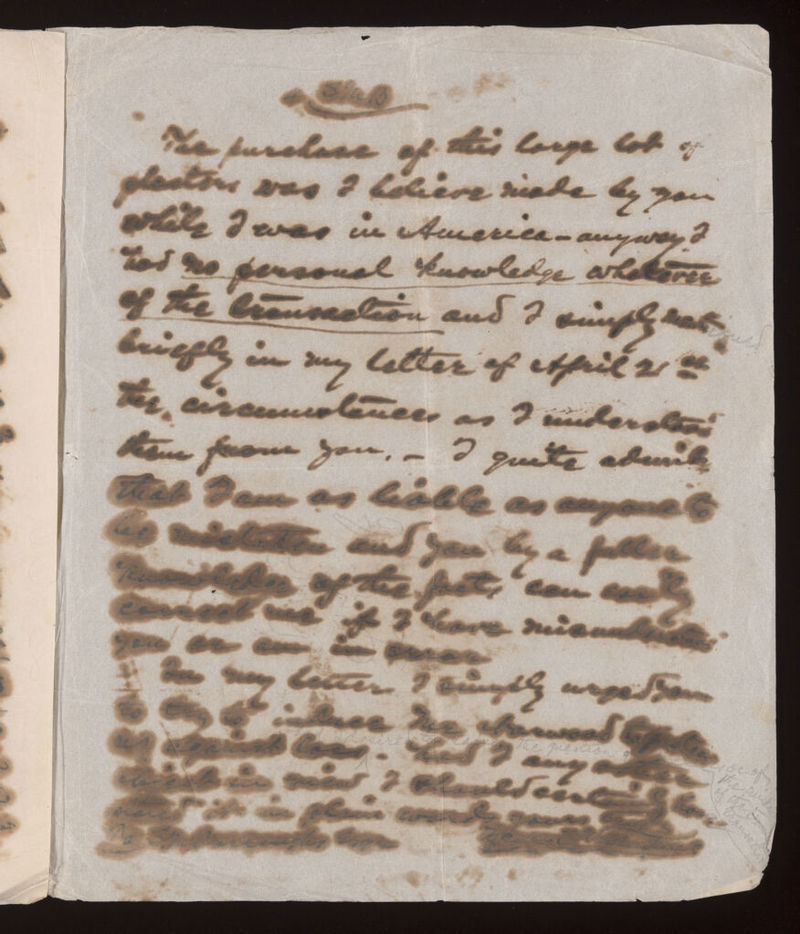 The purchase of this large lot of
was I believe made by you
while I was in America - anyway I
had no personal knowledge whatever
of the transaction and I simply
briefly in my letter of April 21st
the circumstances as I understood
them from you. - I quite admit
that I am as liable as anyone to
be mistaken and you by a fuller
knowledge of the facts can easily
correct me if I have misunderstood
you or am in error
In my letter I simply urged you
to try to induce
us against loss. Had I any other
in view I should certainly have
said it in plain words